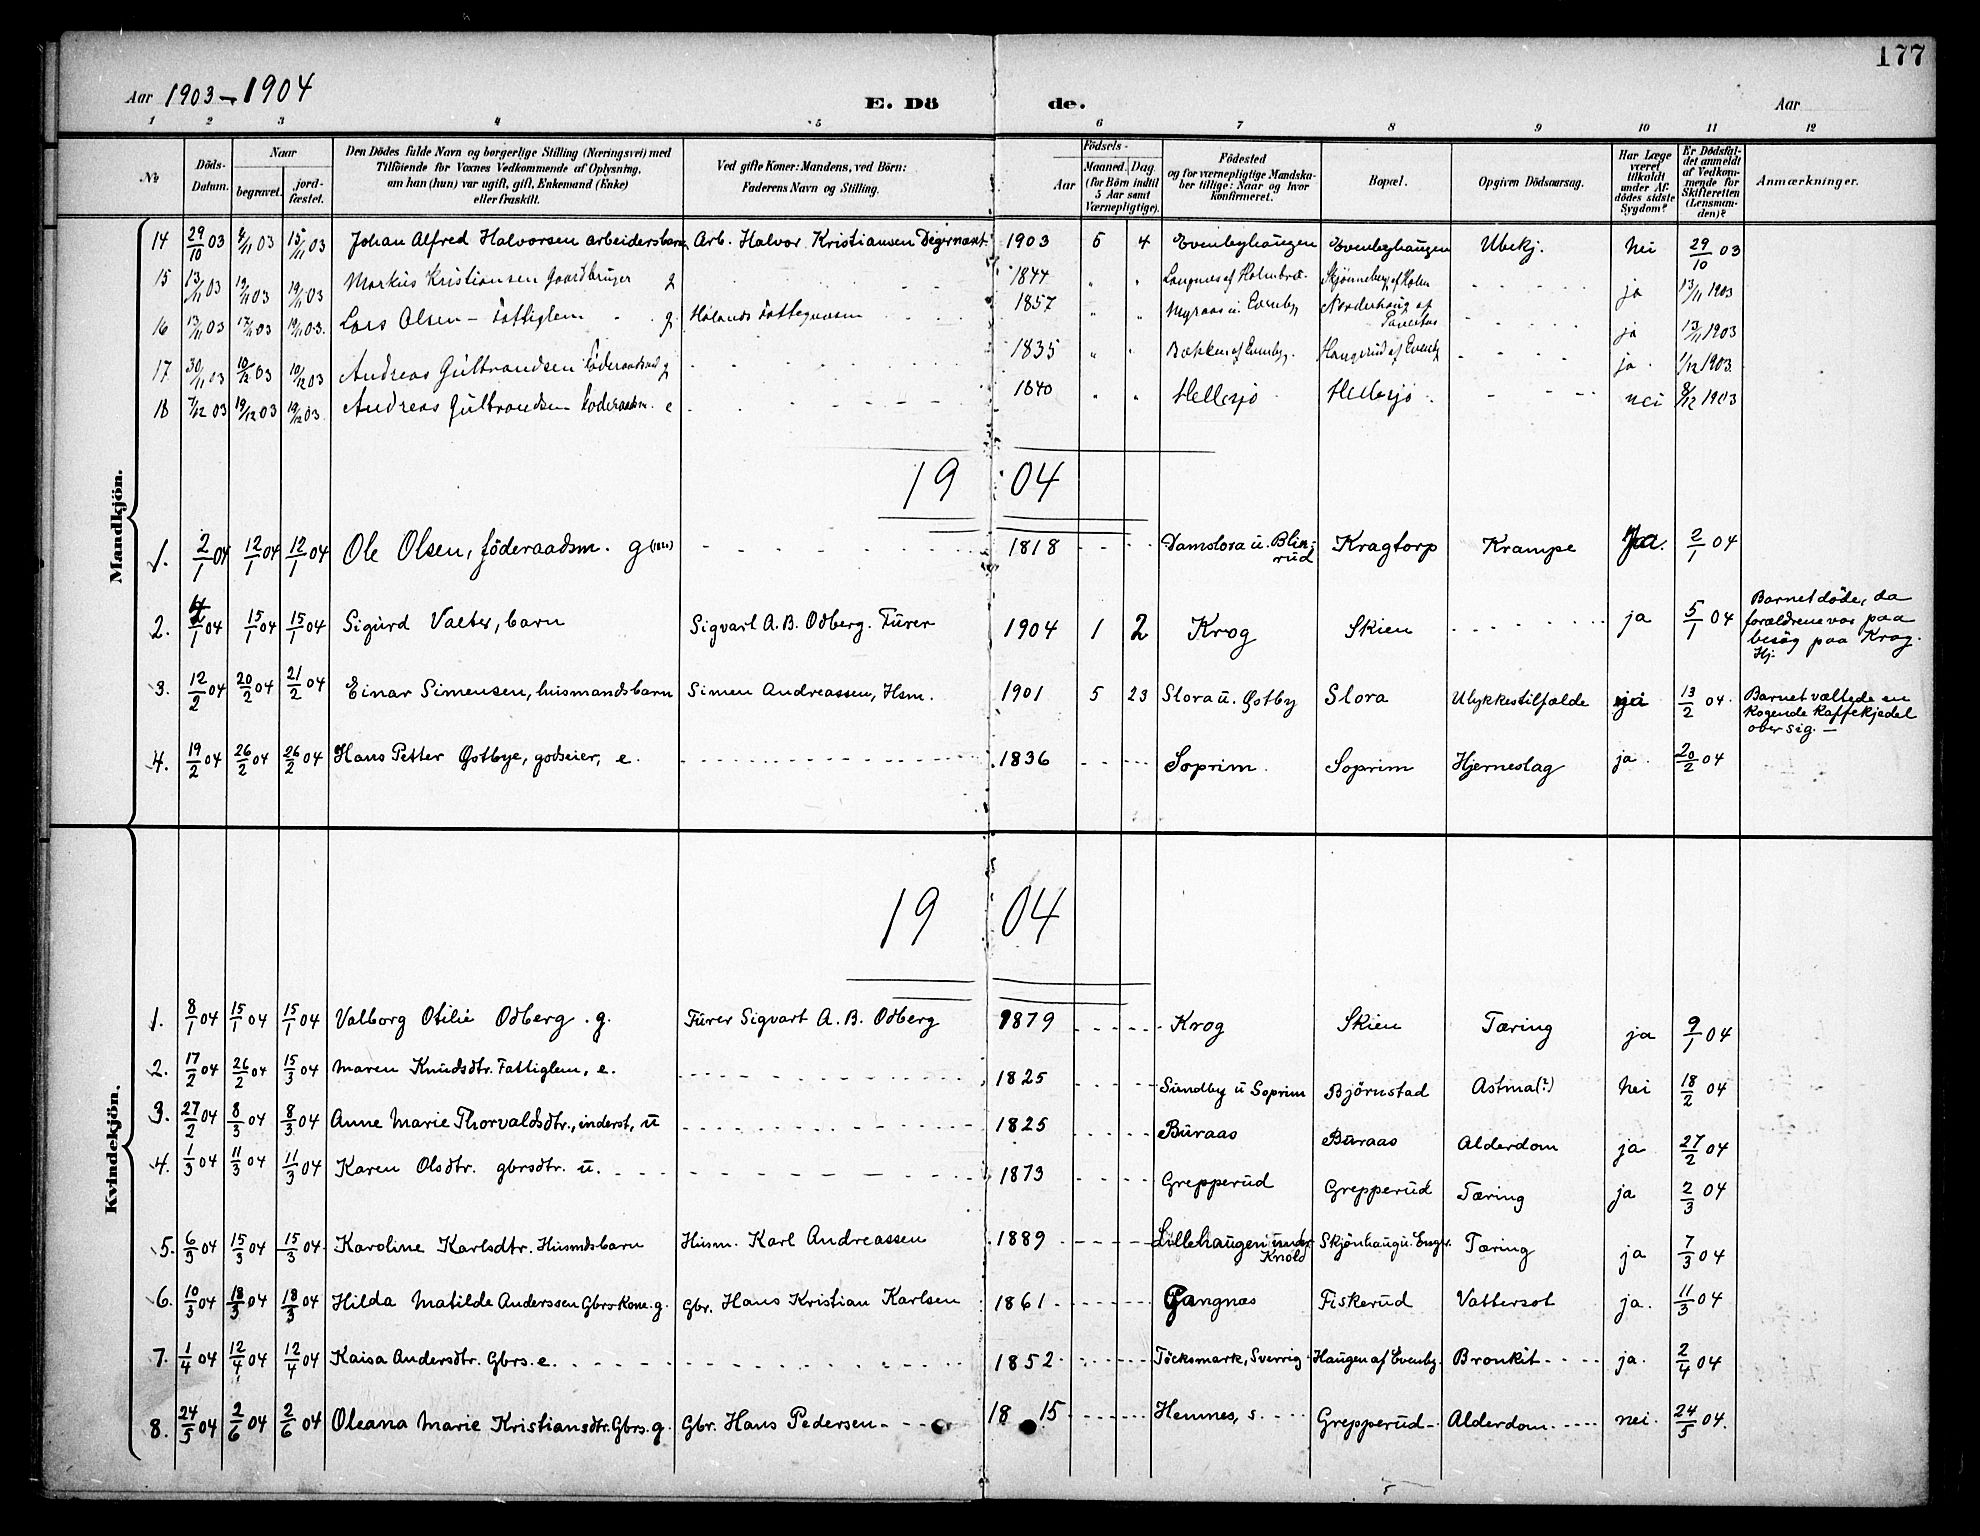 177
Aar 1903 - 1904 E. Dö de. Aar
1 2 3 4 5 6 7 8 9 10 11 12
№ Döds-Datum. Naar begravet. jord-fæstet. Den Dödes fulde Navn og borgerlige Stilling (Næringsvei) med Tilföiende for Voxnes Vedkommende af Oplysning, om han (hun) var ugift, gift, Enkemand (Enke) eller fraskilt. Ved gifte Koner: Mandens, ved Börn: Faderens Navn og Stilling. Födsels- Aar Maaned. Dag. (for Börn indtil 5 Aar samt Værnepligtige). Födested og for værnepligtige Mandskaber tillige: Naar og hvor konfirmeret. Bopæl. Opgiven Dödsaarsag. Har Læge været tilkaldt under Afdödes sidste Sygdom? Er Dödsfaldet anmeldt af Vedkommende for Skifteretten (Lensmanden)? Anmærkninger.
Mandkjön.
14 29/10 03 8/11 03 15/11 03 Johan Alfred Halvorsen arbeidersbarn Arb. Halvor Kristiansen Degernæst 1903 5 4 Evenbyhaugen Evenbyhaugen Ubekj. Nei 29/10 03
15 13/11 03 19/11 03 19/11 03 Markus Kristiansen Gaardbruger g 1844 " " Langnes af Holmbret. Skjønneberg af Holm ja 13/11 1903
16 13/11 03 17/11 03 19/11 03. Lars Olsen - Fattiglem g. Hølands Fattigvæsen 1857 " " Myraas u. Evenby Nordenhaug af ja 13/11 1903
17 30/11 03 10/12 03 10/12 03 Andreas Gulbrandsen Föderaadsmd g 1835 " " Bækken af Evenby. Haugerud af Evenby ja. 1/12 1903
18 7/12 03 19/12 03 19/12 03. Andreas Gulbrandsen Föderaadsm. e 1840 " " Hellesjø Hellesjø nei 8/12 1903
19 04
1. 2/1 04 12/1 04 12/1 04 Ole Olsen, föderaadsm. g 1818 Damslora u. Blinrud Kragtorp Krampe Ja. 2/1 04
2. 4/1 04 15/1 04 15/1 04 Sigurd Valter, barn Sigvart A. B. Odberg. Fürer 1904 1 2 Krog Skien ja 5/1 04 Barnet döde, da
forældrene var paa
besög paa Krog.
Hj.
3. 12/2 04 20/2 04 21/2 04 Einar Simensen, husmandsbarn Simen Andreassen, Hsm. 1901 5 23 Slora u. Østby Slora Ulykkestilfælde ja 13/2 04. Barnet væltede en
kogende kaffekjedel
over sig. —
4. 19/2 04 26/2 04 26/2 04 Hans Petter Østbye, godseier, e. 1836 Soprim. Soprim Hjerneslag ja. 20/2 04
Kvindekjön.
19 04
1. 8/1 04 15/1 04 15/1 04 Valborg Otilie Odberg. g. Fürer Sigvart A. B. Odberg 1879 Krog Skien Tæring ja 9/1 04
2. 17/2 04 26/2 04 15/3 04 Maren Knudsdtr. Fattiglem, e. 1825 Sundby u Soprim Bjørnstad Astma (?) Nei 18/2 04
3. 27/2 04 8/3 04 8/3 04 Anne Marie Thorvaldsdtr., inderst, u 1825 Buraas Buraas Alderdom ja 27/2 04
4. 1/3 04 11/3 04 11/3 04 Karen Olsdtr. gbrsdtr. u. 1873 Grepperud Grepperud Tæring ja 2/3 04
5. 6/3 04 15/3 04 15/3 04. Karoline Karlsdtr. Husmdsbarn Husm. Karl Andreassen 1889 Lillehaugen under Knold Skjönhaug u. Engr. Tæring ja 7/3 04
6. 10/3 04 18/3 04 18/3 04 Hilda Matilde Anderssen Gbrs kone. g. Gbr. Hans Kristian Karlsen 1861. Gangnæs Fiskerud Vattersot ja. 11/3 04
7. 1/4 04 12/4 04 12/4 04 Kaisa Andersdtr. Gbrs. e. 1852. Töcksmark, Sverrig Haugen af Evenby. Bronkit ja. 2/4 04
8. 24/5 04 2/6 04 2/6 04 Oleana Marie Kristiansdtr. Gbrs. g. Gbr. Hans Pedersen 1815 Hemnes, s. Grepperud Alderdom nei. 24/5 04.